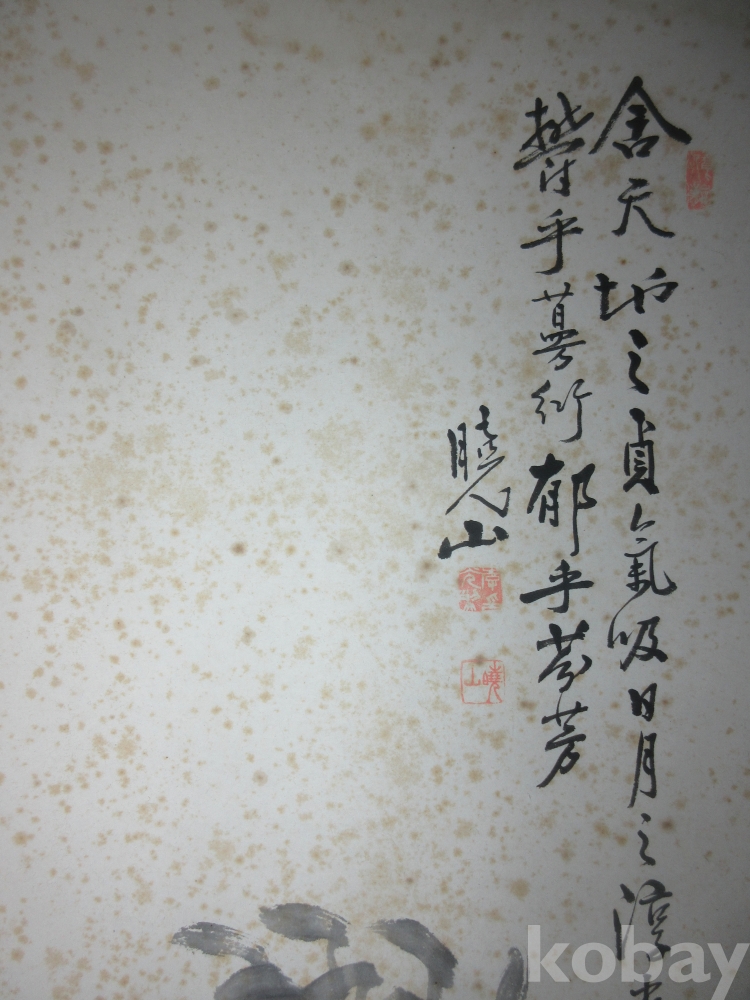 含天地之貞氣吸日月之淳
鬱乎蔓衍郁乎芬芳
曉山
曉山
kobay